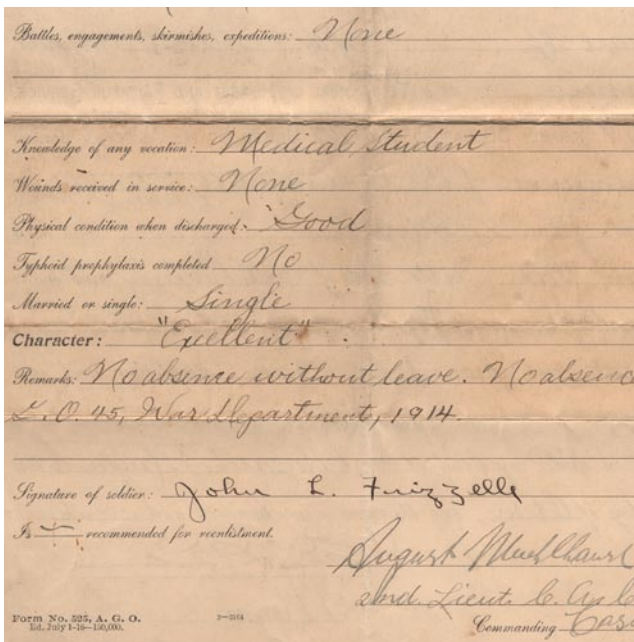 Battles, engagements, skirmishes, expeditions: None
Knowledge of any vocation: Medical Student
Wounds received in service: None
Physical condition when discharged: Good
Typhoid prophylaxis completed No
Married or single: Single
Character: "Excellent"
Remarks: No absence without leave. No absenc
G.O. 45, War Department, 1914.
Signature of soldier: John L. Frizzelle
Is recommended for reenlistment.
August
2nd. Lieut. C.
Form No. 525, A. G. O.
Ed. July 1-16—150,000.
3—3164
Commanding